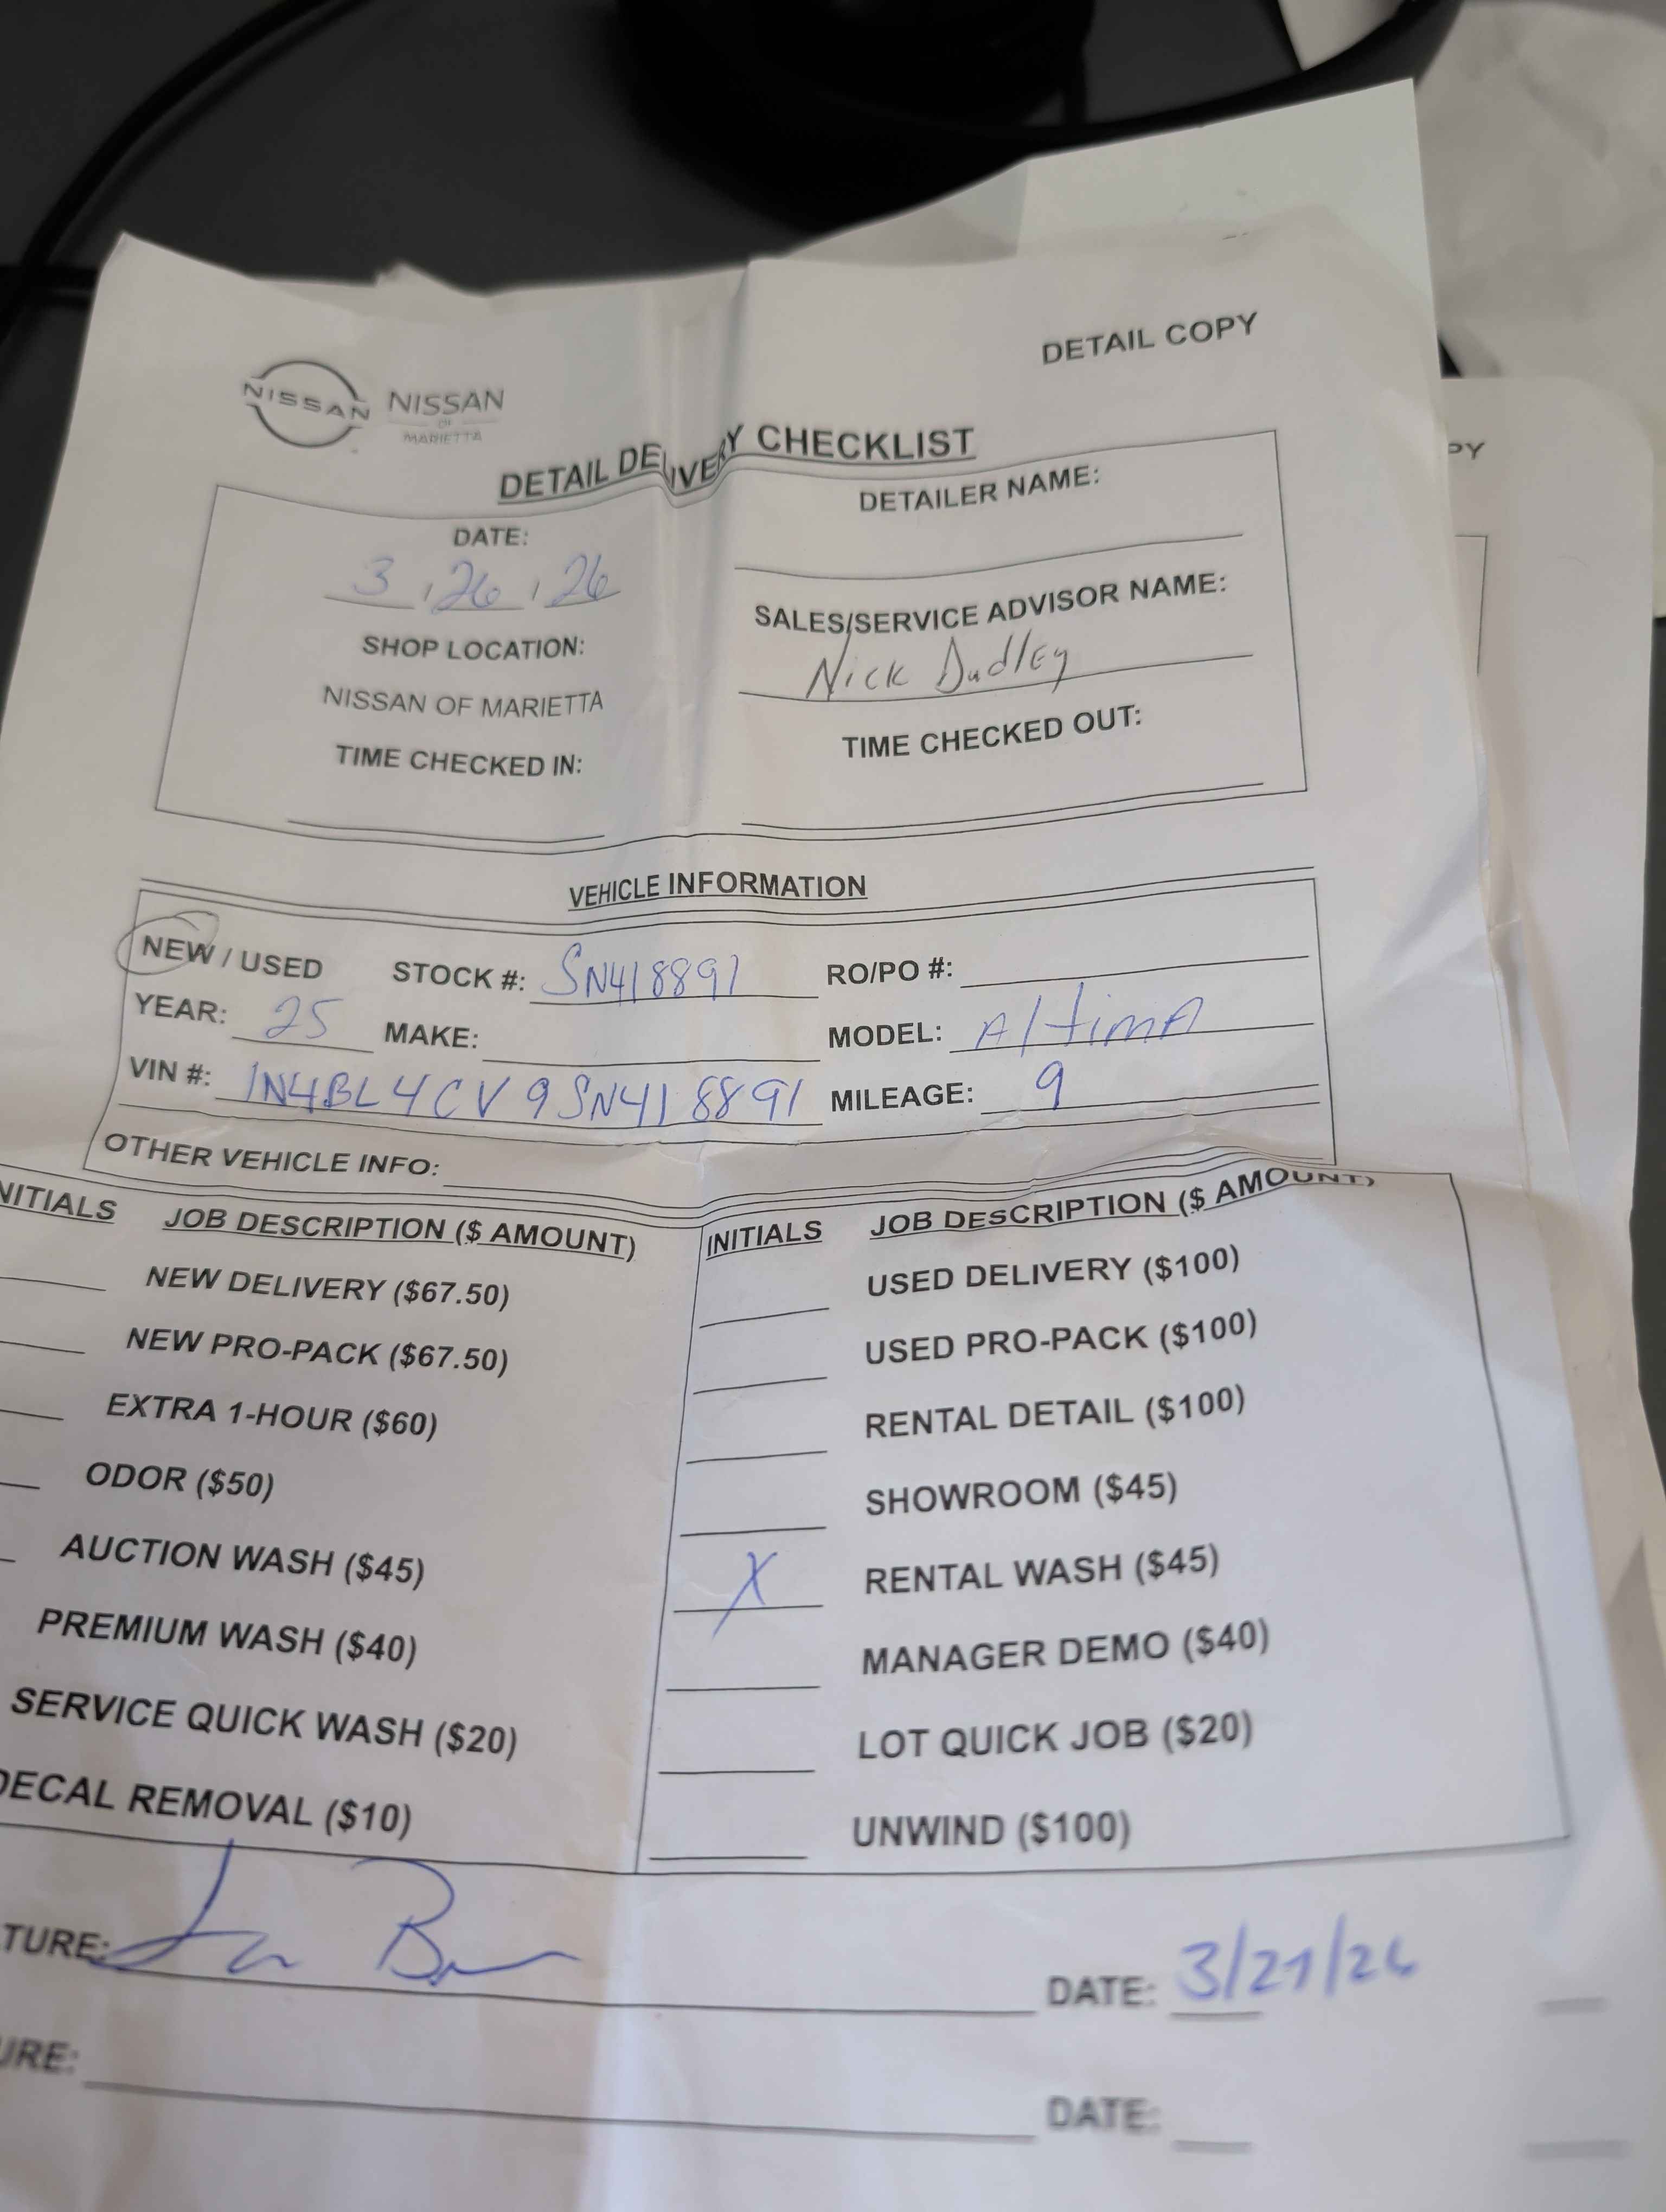 DETAIL COPY
NISSAN NISSAN
OF
MARIETTA
DETAIL DELIVERY CHECKLIST
DATE:
3, 26, 26
SHOP LOCATION:
NISSAN OF MARIETTA
TIME CHECKED IN:
DETAILER NAME:
SALES/SERVICE ADVISOR NAME:
Nick Dudley
TIME CHECKED OUT:
PY
VEHICLE INFORMATION
NEW / USED STOCK #: SN418891 RO/PO #:
YEAR: 25 MAKE: MODEL: AltimA
VIN #: 1N4BL4CV9SN418891 MILEAGE: 9
OTHER VEHICLE INFO:
NITIALS JOB DESCRIPTION ($ AMOUNT) INITIALS JOB DESCRIPTION ($ AMOUNT)
NEW DELIVERY ($67.50) USED DELIVERY ($100)
NEW PRO-PACK ($67.50) USED PRO-PACK ($100)
EXTRA 1-HOUR ($60) RENTAL DETAIL ($100)
ODOR ($50) SHOWROOM ($45)
AUCTION WASH ($45) X RENTAL WASH ($45)
PREMIUM WASH ($40) MANAGER DEMO ($40)
SERVICE QUICK WASH ($20) LOT QUICK JOB ($20)
DECAL REMOVAL ($10) UNWIND ($100)
TURE: DATE: 3/27/26
URE: DATE: